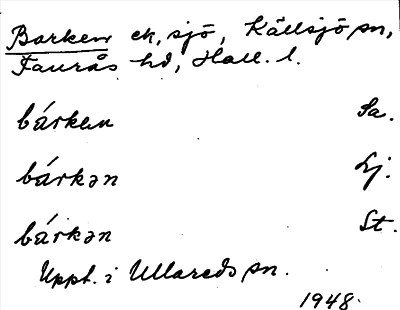 Barken ek, sjö, Källsjö sn,
Faurås hd, Hall. l.
bárken Sa.
bárkən Lj.
bárkən St.
Uppt. i Ullareds sn.
1948.